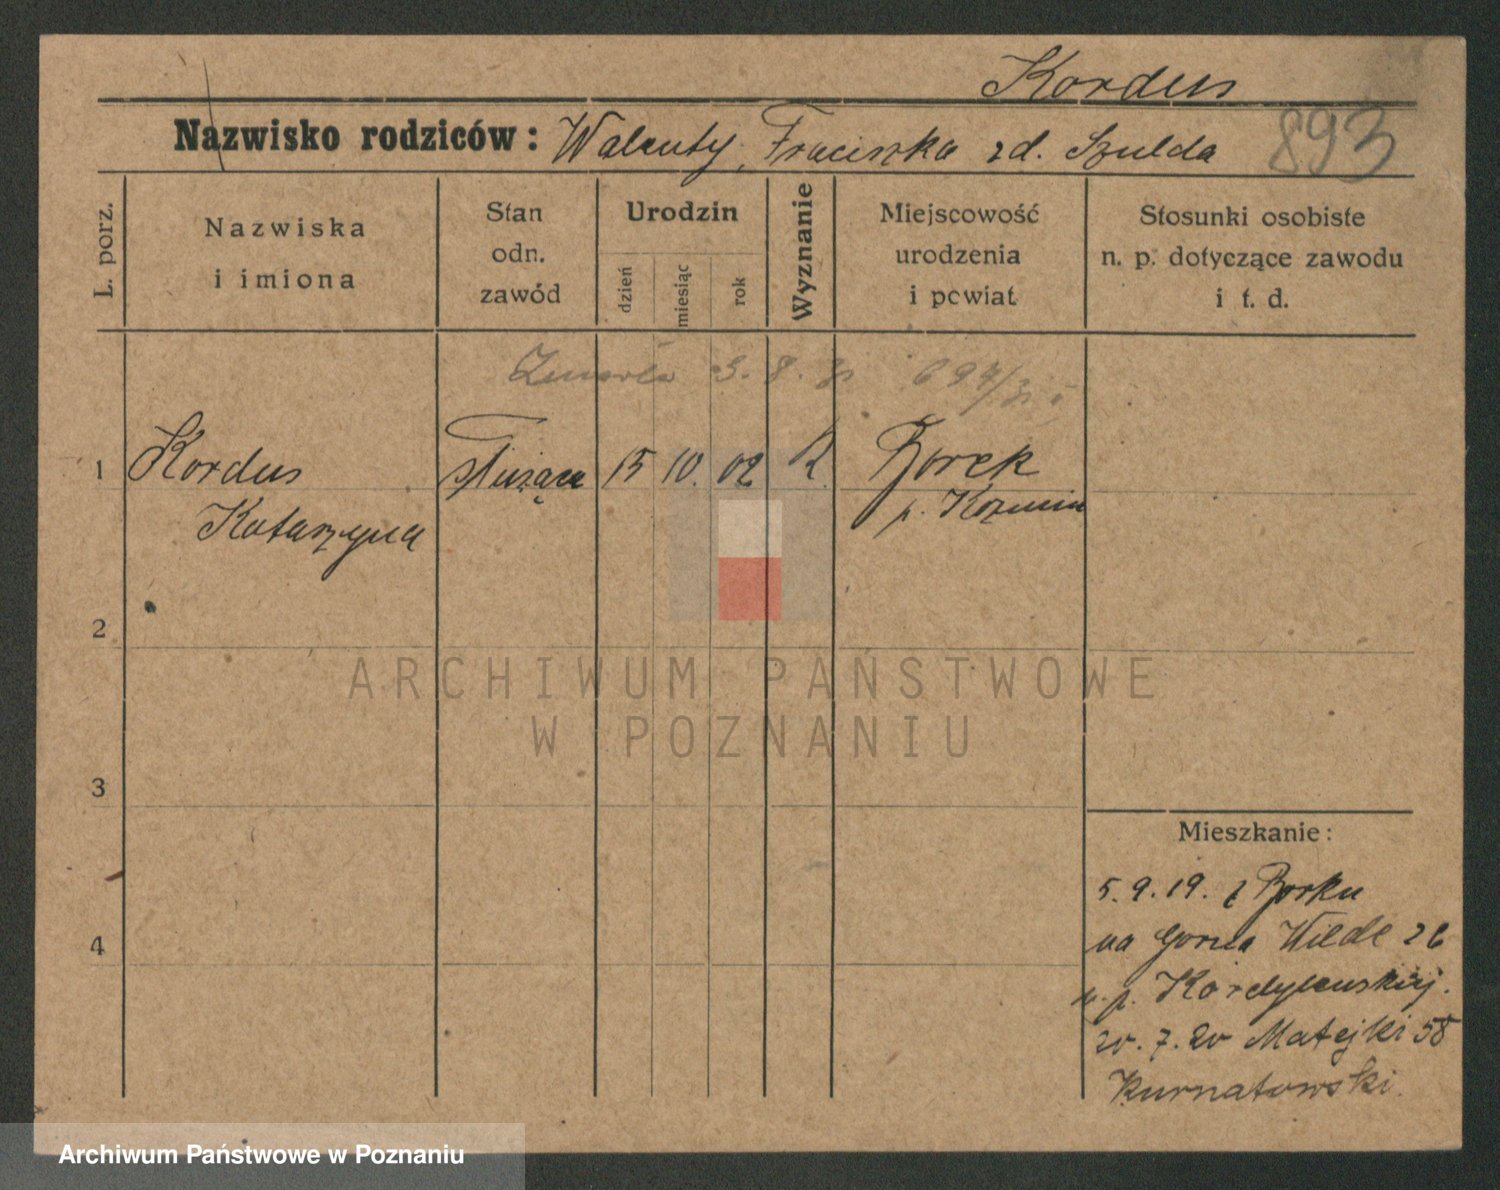 Kordus
Nazwisko rodziców: Walenty, Fraciszka zd. Szulda
893
L. porz.
Nazwiska
i imiona
Stan
odn.
zawód
Urodzin
dzień
miesiąc
rok
Wyznanie
Miejscowość
urodzenia
i powiat
Stosunki osobiste
n. p. dotyczące zawodu
i t. d.
Zmarła 3. 8.
1 Kordus służąca 15 10. 02 R. Borek
Katarzyna p. Kozmin
2
ARCHIWUM PAŃSTWOWE
W POZNANIU
3
4
Mieszkanie:
5.9.19. z Borku
na Gorna Wilde 26
u. p. Kordylewskiej.
20.7.20 Matejki 58
Kurnatowski.
Archiwum Państwowe w Poznaniu